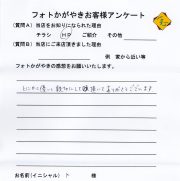 フォトかがやきお客様アンケート
(質問A) 当店をお知りになられた理由
チラシ HP ご紹介 その他
(質問B) 当店にご来店頂きました理由
例 家から近い等
フォトかがやきの感想をお願いいたします。
とにかく優しく親切にして頂いてありがとうございます
お名前(イニシャル) 様